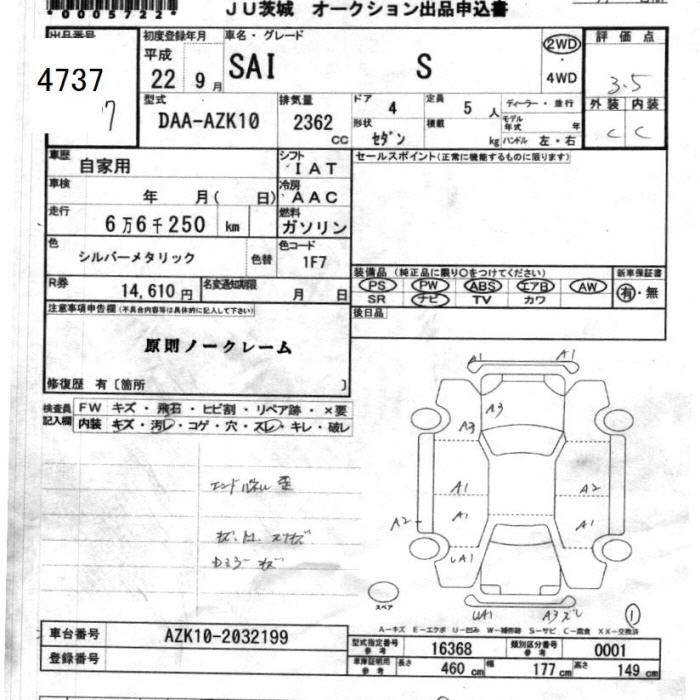 *0005722*
JU茨城 オークション出品申込書
出品番号
4737
7
初度登録年月
平成
22 9月
車名・グレード
SAI S
2WD
・
4WD
評価点
3.5
外装 内装
C C
型式
DAA-AZK10
排気量
2362 CC
ドア 4
定員 5 人
ディーラー・並行
形状 セダン
積載 kg
モデル年式 年
ハンドル 左・右
車歴
自家用
シフト
IAT
セールスポイント(正常に機能するものに限ります)
車検
年 月( 日)
冷房
AAC
走行
6万6千250 km
燃料
ガソリン
色
シルバーメタリック
色替
色コード
1F7
R券
14,610円
名変通知期限
月 日
装備品 (純正品に限り○をつけてください)
新車保証書
PS PW ABS エアB AW
有・無
SR ナビ TV カワ
後日品
注意事項申告欄(不具合内容等は具体的に記入して下さい)
原則ノークレーム
修復歴 有[箇所 ]
検査員
記入欄
FW キズ・飛石・ヒビ割・リペア跡・×要
内装 キズ・汚レ・コゲ・穴・スレ・キレ・破レ
A1 A1
A3
A3
A1 A2
A1 A1
A2
UA1
UA1 A3 ズレ
1
エンドパネル 歪
スペア
A-キズ E-エクボ U-凹み W-補修跡 S-サビ C-腐食 XX-交換済
車台番号 AZK10-2032199
登録番号
型式指定番号
参考
16368
類別区分番号
参考
0001
車庫証明用
参考
長さ 460 cm 幅 177 cm 高さ 149 cm